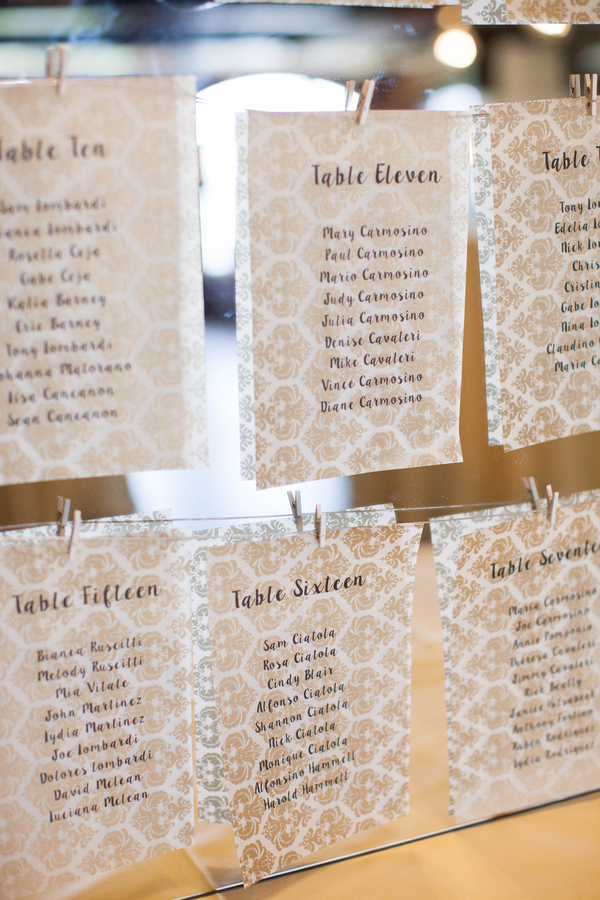 Table Ten
Lombardi
Lombardi
Rosella Ceja
Gabe Ceja
Katia Barney
Eric Barney
Tony Lombardi
Matorano
Lisa Cancanon
Sean Cancanon
Table Eleven
Mary Carmosino
Paul Carmosino
Mario Carmosino
Judy Carmosino
Julia Carmosino
Denise Cavaleri
Mike Cavaleri
Vince Carmosino
Diane Carmosino
Table T
Tony Lo
Edelia Lo
Nick Lo
Chris
Cristin
Gabe Lo
Nina Lo
Claudino
Maria C
Table Fifteen
Bianca Ruscitti
Melody Ruscitti
Mia Vitale
John Martinez
Lydia Martinez
Joe Lombardi
Dolores Lombardi
David McLean
Luciana McLean
Table Sixteen
Sam Ciatola
Rosa Ciatola
Cindy Blair
Alfonso Ciatola
Shannon Ciatola
Nick Ciatola
Monique Ciatola
Alfonsino Hammett
Harold Hammett
Table Sevente
Maria Carmosino
Joe Carmosino
Annie Pomponio
Theresa Cavaleri
Jimmy Cavaleri
Rick Beatty
Janice
Anthony
Ruben Rodrigue
Lydia Rodrigue